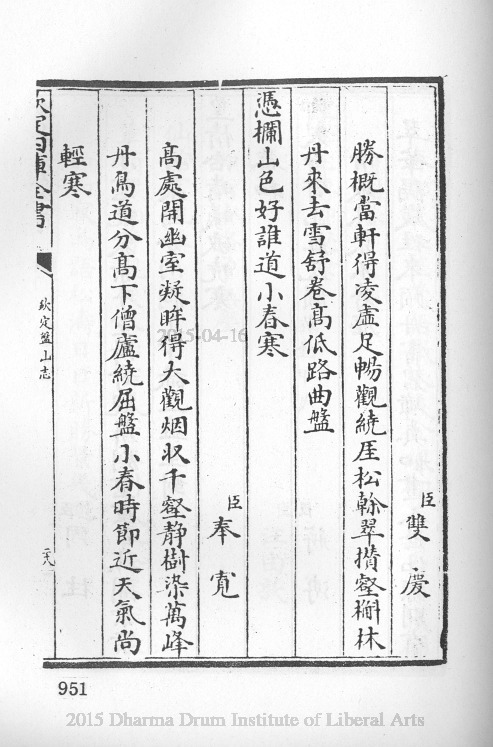 臣雙慶
勝概當軒得凌虛足暢觀繞厓松榦翠攢壑槲林
丹來去雲舒卷髙低路曲盤
憑欄山色好誰道小春寒
臣奉寬
髙處開幽室凝眸得大觀烟収千壑静樹染萬峰
丹鳥道分髙下僧廬繞屈盤小春時節近天氣尚
輕寒
欽定四庫全書
欽定盤山志
951
2015-04-16
2015 Dharma Drum Institute of Liberal Arts